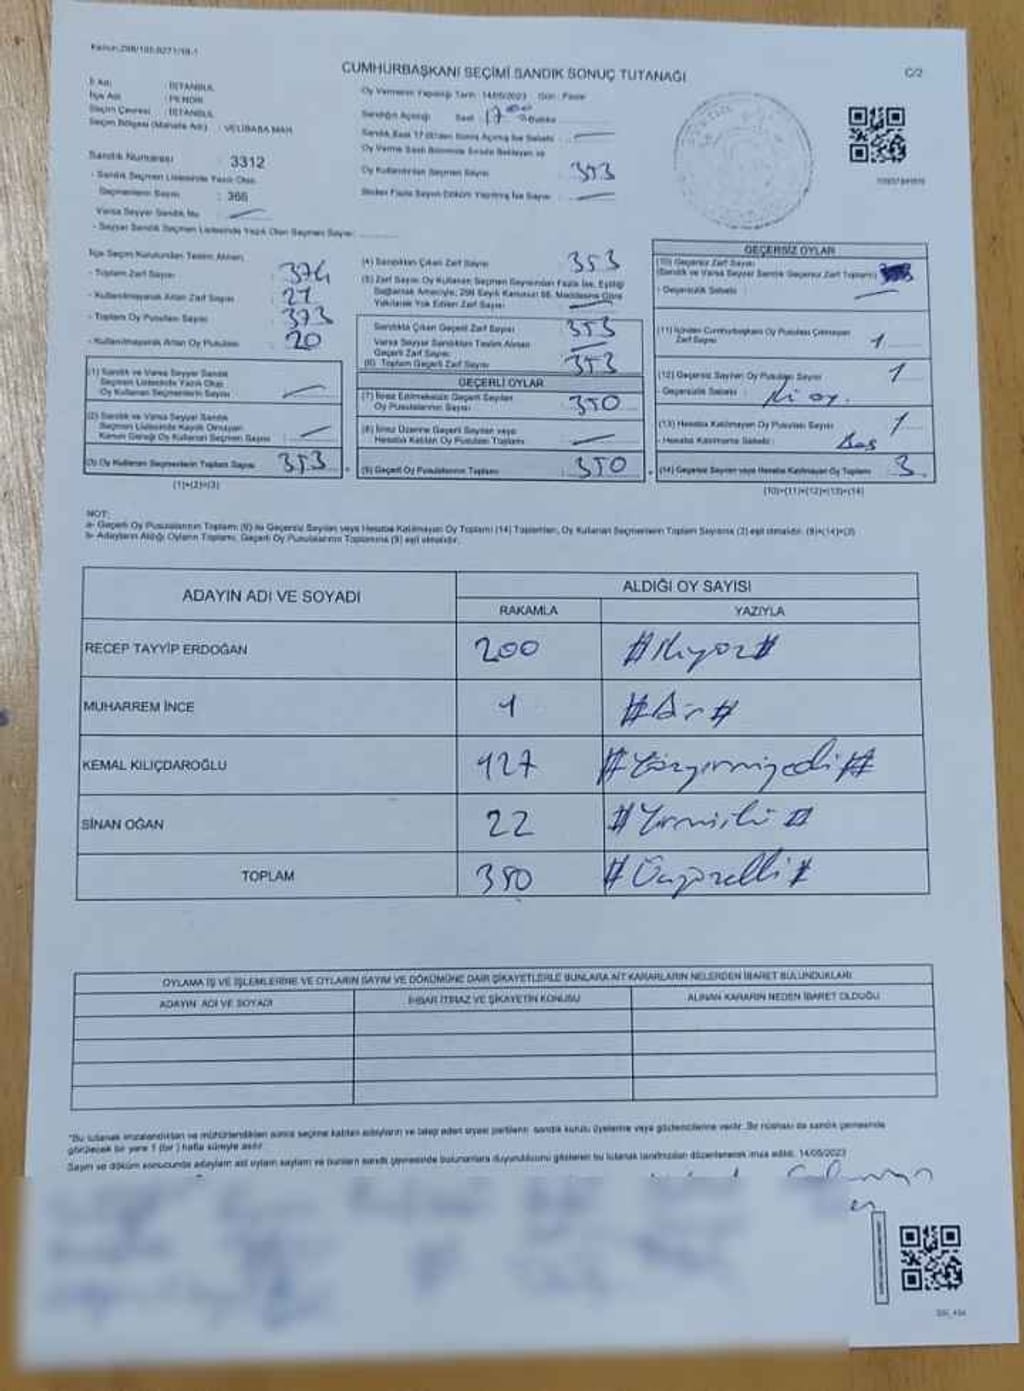 CUMHURBAŞKANI SEÇİMİ SANDIK SONUÇ TUTANAĞI
C/2
İl Adı : İSTANBUL
İlçe Adı : PENDİK
Seçim Çevresi : İSTANBUL
Seçim Bölgesi (Mahalle Adı) : VELİBABA MAH.
Oy Vermenin Yapıldığı Tarih : 14/05/2023 Gün : Pazar
Sandığın Açıldığı Saat 17 00
Sandık Numarası : 3312
- Sandık Seçmen Listesinde Yazılı Olan
Seçmenlerin Sayısı : 366
Varsa Seyyar Sandık No
- Seyyar Sandık Seçmen Listesinde Yazılı Olan Seçmen Sayısı
Oy Kullandırılan Seçmen Sayısı 353
İlçe Seçim Kurulundan Teslim Alınan
- Toplam Zarf Sayısı 374
- Kullanılmayarak Artan Zarf Sayısı 21
- Toplam Oy Pusulası Sayısı 373
- Kullanılmayarak Artan Oy Pusulası 20
(1) Sandık ve Varsa Seyyar Sandık
Seçmen Listesinde Yazılı Olup
Oy Kullanan Seçmenlerin Sayısı
(2) Sandık ve Varsa Seyyar Sandık
Seçmen Listesinde Kaydı Olmayan
Kanun Gereği Oy Kullanan Seçmen Sayısı
(3) Oy Kullanan Seçmenlerin Toplam Sayısı 353
(1)+(2)=(3)
(4) Sandıktan Çıkan Zarf Sayısı 353
(5) Zarf Sayısı Oy Kullanan Seçmen Sayısından Fazla İse, Eşitliği
Sağlamak Amacıyla, 298 Sayılı Kanunun 98. Maddesine Göre
Yakılarak Yok Edilen Zarf Sayısı
Sandıkta Çıkan Geçerli Zarf Sayısı 353
Varsa Seyyar Sandıktan Teslim Alınan
Geçerli Zarf Sayısı
(6) Toplam Geçerli Zarf Sayısı 353
GEÇERLİ OYLAR
(7) İtiraz Edilmeksizin Geçerli Sayılan
Oy Pusulalarının Sayısı 350
(8) İtiraz Üzerine Geçerli Sayılan veya
Hesaba Katılan Oy Pusulası Toplamı
(9) Geçerli Oy Pusulalarının Toplamı 350
GEÇERSİZ OYLAR
(10) Geçersiz Zarf Sayısı
(Sandık ve Varsa Seyyar Sandık Geçersiz Zarf Toplamı)
- Geçersizlik Sebebi
(11) İçinden Cumhurbaşkanı Oy Pusulası Çıkmayan
Zarf Sayısı 1
(12) Geçersiz Sayılan Oy Pusulası Sayısı 1
Geçersizlik Sebebi :
(13) Hesaba Katılmayan Oy Pusulası Sayısı 1
- Hesaba Katılmama Sebebi : Boş
(14) Geçersiz Sayılan veya Hesaba Katılmayan Oy Toplamı 3
(10)+(11)+(12)+(13)=(14)
NOT:
a- Geçerli Oy Pusulalarının Toplamı (9) ile Geçersiz Sayılan veya Hesaba Katılmayan Oy Toplamı (14) Toplamları, Oy Kullanan Seçmenlerin Toplam Sayısına (3) eşit olmalıdır. (9)+(14)=(3)
b- Adayların Aldığı Oyların Toplamı, Geçerli Oy Pusulalarının Toplamına (9) eşit olmalıdır.
ADAYIN ADI VE SOYADI
ALDIĞI OY SAYISI
RAKAMLA YAZIYLA
RECEP TAYYİP ERDOĞAN 200 #İkiyüz#
MUHARREM İNCE 1 #Bir#
KEMAL KILIÇDAROĞLU 127 #Yüzyirmiyedi#
SİNAN OĞAN 22 #Yirmiiki#
TOPLAM 350 #Üçyüzelli#
OYLAMA İŞ VE İŞLEMLERİNE VE OYLARIN SAYIM VE DÖKÜMÜNE DAİR ŞİKAYETLERLE BUNLARA AİT KARARLARIN NELERDEN İBARET BULUNDUKLARI
ADAYIN ADI VE SOYADI
İHBAR İTİRAZ VE ŞİKAYETİN KONUSU
ALINAN KARARIN NEDEN İBARET OLDUĞU
"Bu tutanak imzalandıktan ve mühürlendikten sonra seçime katılan adayların ve talep eden siyasi partilerin sandık kurulu üyelerine veya gözlemcilerine verilir. Bir nüshası da sandık çevresinde
görülecek bir yere 1 (bir) hafta süreyle asılır.
Sayım ve döküm sonucunda adayların ad oyların sayıları ve bunların sandık çevresinde bulunanlara duyurulduğunu gösteren bu tutanak tarafımızdan düzenlenerek imza edildi. 14/05/2023